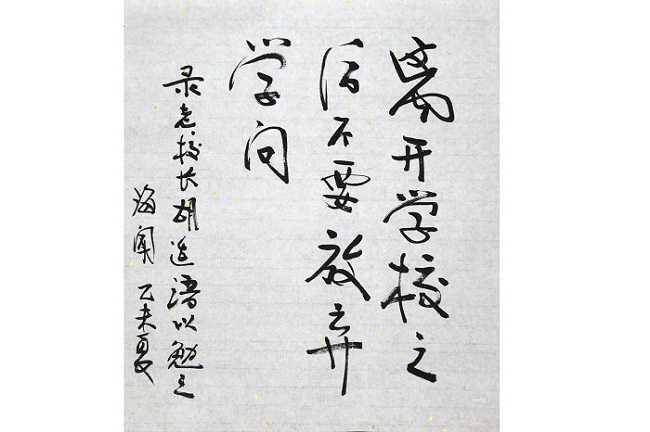 离开学校之
后不要放弃
学问
录老校长胡适语以勉之
海闻 乙未夏